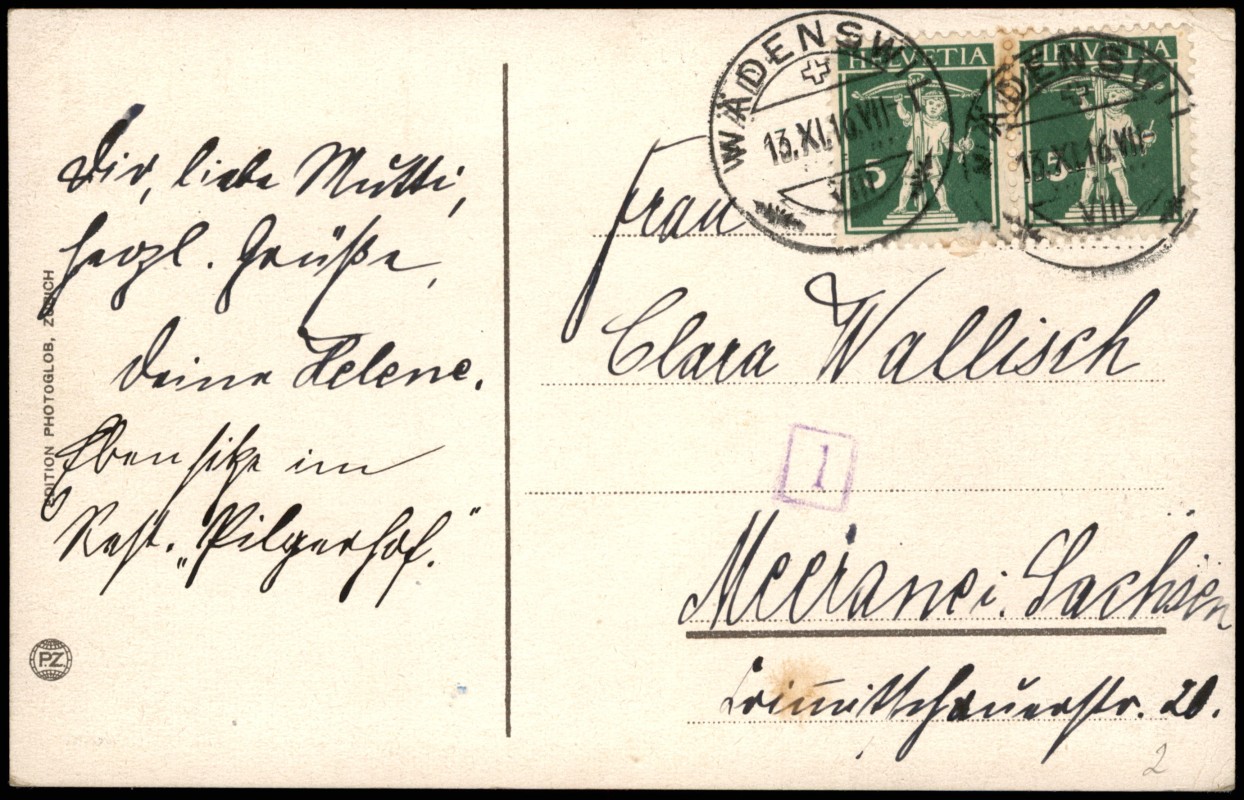 Dir, liebe Mutti,
herzl. Grüße,
deine Helene.
Eben sitze im
Rest. „Pilgerhof."
EDITION PHOTOGLOB, ZÜRICH
P.Z.
WÄDENSWIL
13.XI.16.VII
VIII
HELVETIA
5
WÄDENSWIL
13.XI.16.VII
VIII
HELVETIA
5
Frau
Clara Wallisch
1
Meerane i. Sachsen
Crimmitschauerstr. 20.
2